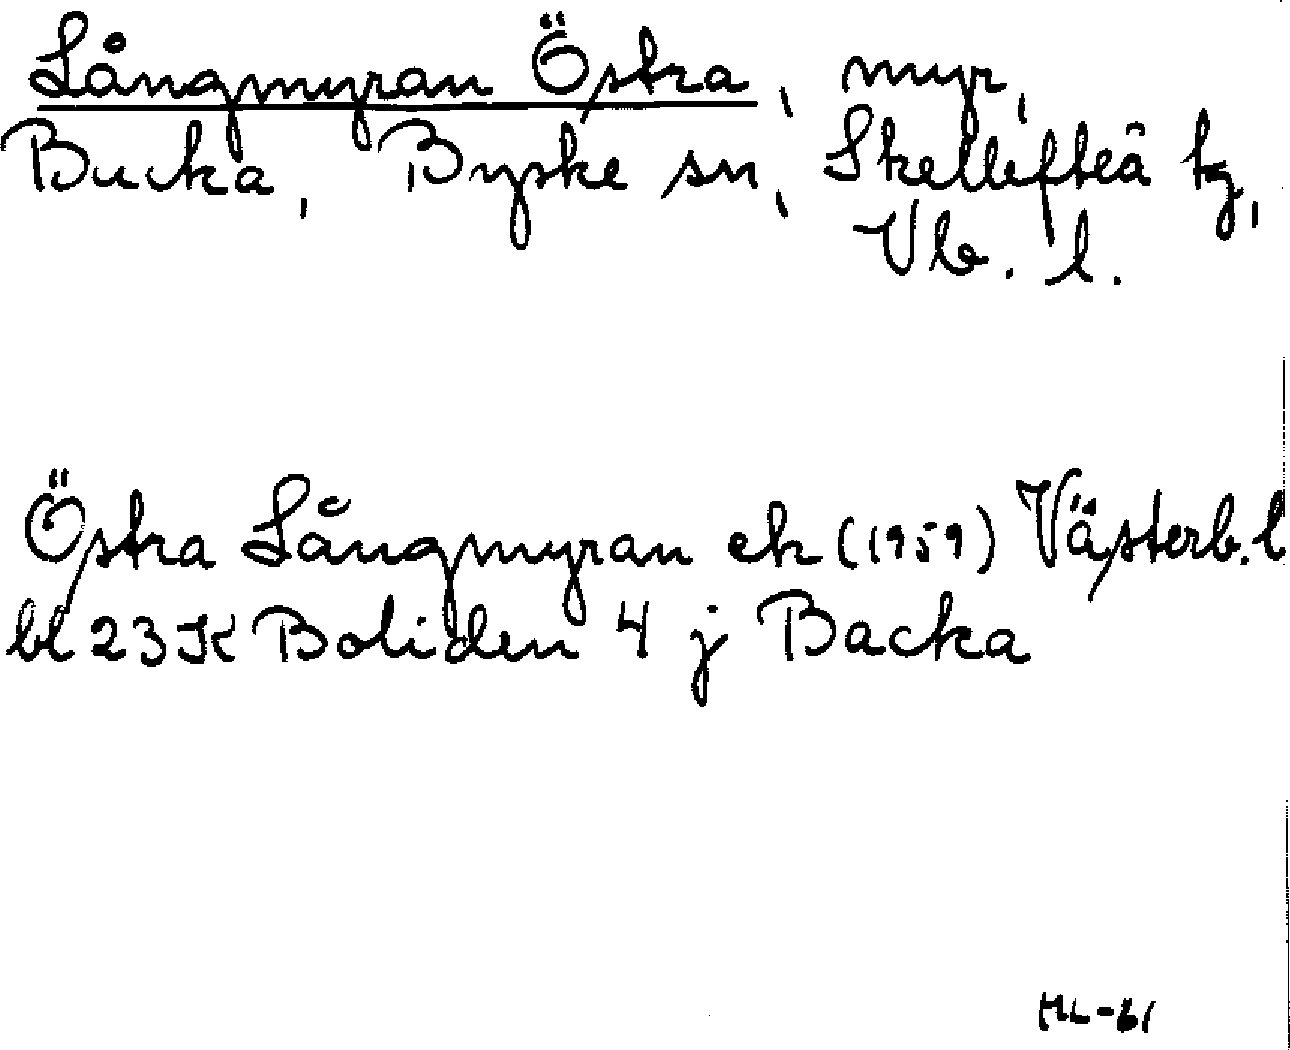 Långmyran Östra, myr,
Backa, Byske sn, Skellefteå tg,
Vb. l.
Östra Långmyran ek (1959) Västerb. l
bl 23K Boliden 4 j Backa
HL-61